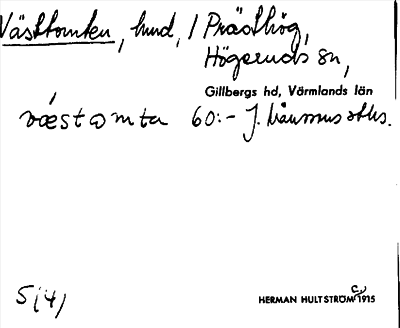 Västtomten, hmd, / Prästhög,
Högeruds sn,
Gillbergs hd, Värmlands län
væstomta 60:- J. Magnusson
5(4)
HERMAN HULTSTRÖM C. 1915